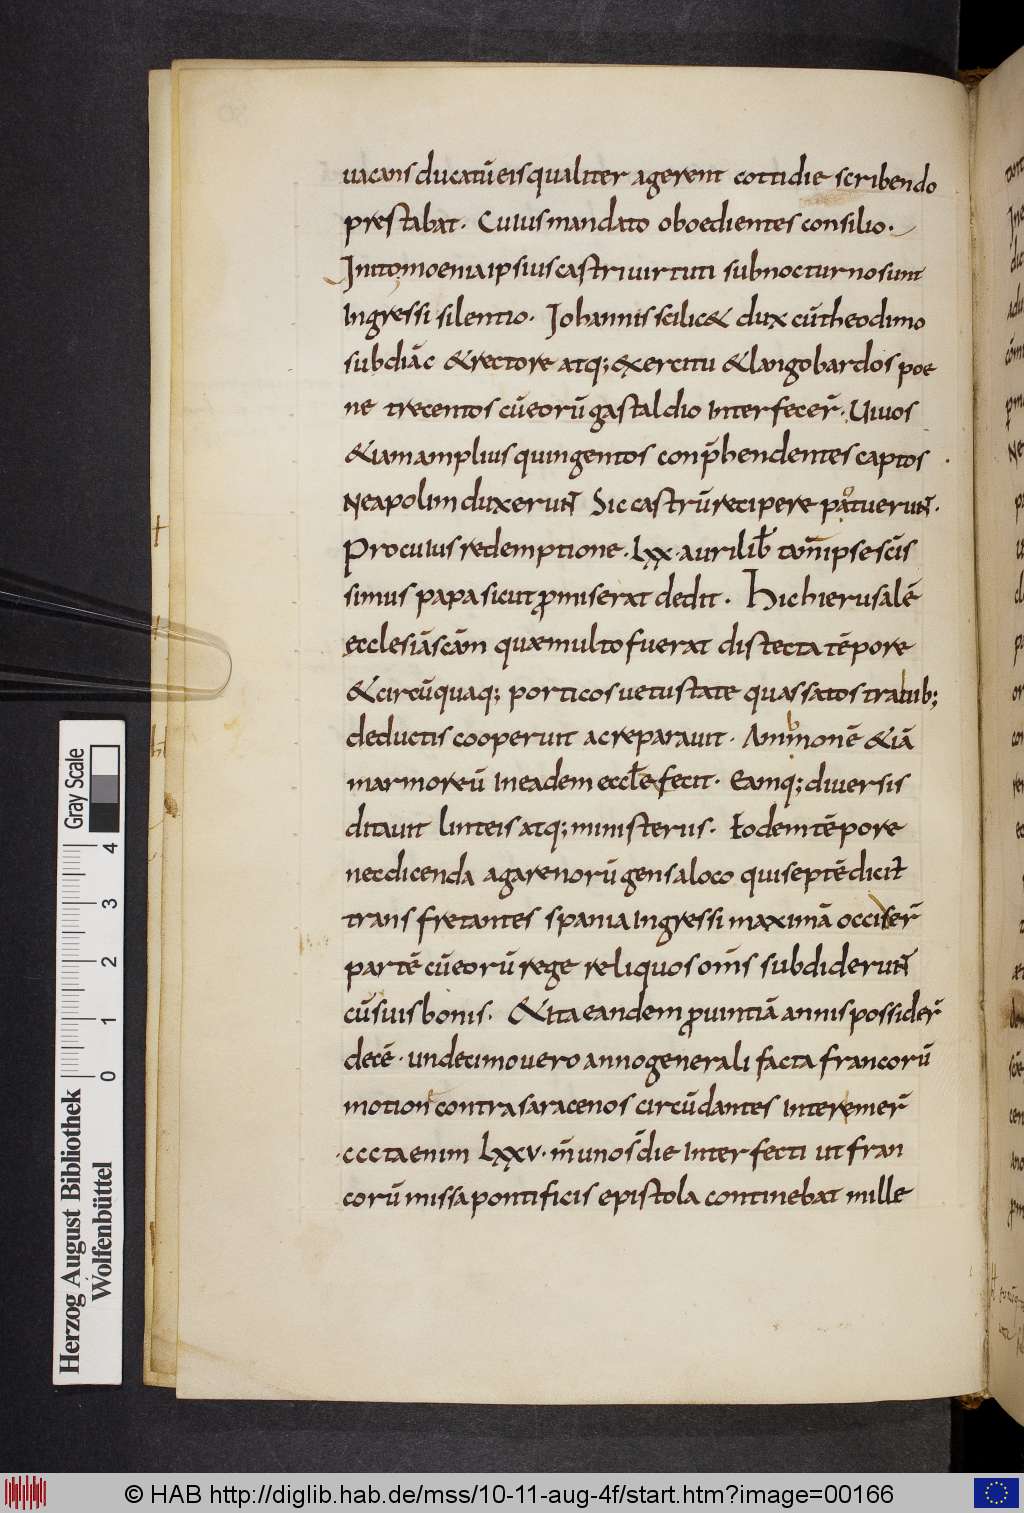 uacans ducatū eis qualiter agerent cottidie scribendo
prestabat. Cuius mandato oboedientes consilio.
Initomoenia ipsius castri uirtuti sub nocturno sunt
Ingressi silentio. Johannis scilic& dux cū theodimo
subdiāc & rectore atq; exercitu & langobardos poe
ne trecentos cū eorū gastaldio Interfecer̄. Uiuos
&iam amplius quingentos conp̄hendentes captos
Neapolim duxerunt̄ Sic castrū recipere patuerunt̄.
Pro cuius redemptione. lxx. auri lib̄ tam ipse scīs
simus papa sicut promiserat dedit. Hic hierusalē
ecclesiā scām quae multo fuerat distecta tēpore
& circūquaq; porticos uetustate quassatos trabib;
deductis cooperuit ac reparauit. Ambmonē &iā
marmoreū In eadem eccłe fecit. Eamq; diuersis
ditauit linteis atq; ministeriis. Eodem tēpore
nec dicenda agarenorū gens a loco qui septē dicit̄
trans fretantes spania Ingressi maximā occiser̄
partē cū eorū rege reliquos om̄s subdiderunt̄
cū suis bonis. & ita eandem prouintiā annis possider̄
decē. undecimo uero anno generali facta francorū
motione contra saracenos circūdantes Interemer̄
.ccc ta enim lxxv. m̄ uno s̄ die Interfecti ut fran
corū missa pontificis epistola continebat mille
Gray Scale
4
3
2
1
0
Herzog August Bibliothek
Wolfenbüttel
© HAB http://diglib.hab.de/mss/10-11-aug-4f/start.htm?image=00166